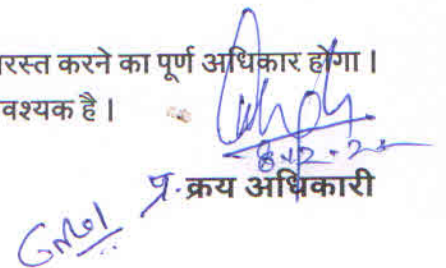 रस्त करने का पूर्ण अधिकार होगा।
वश्यक है।
8.12.2
प्र. क्रय अधिकारी